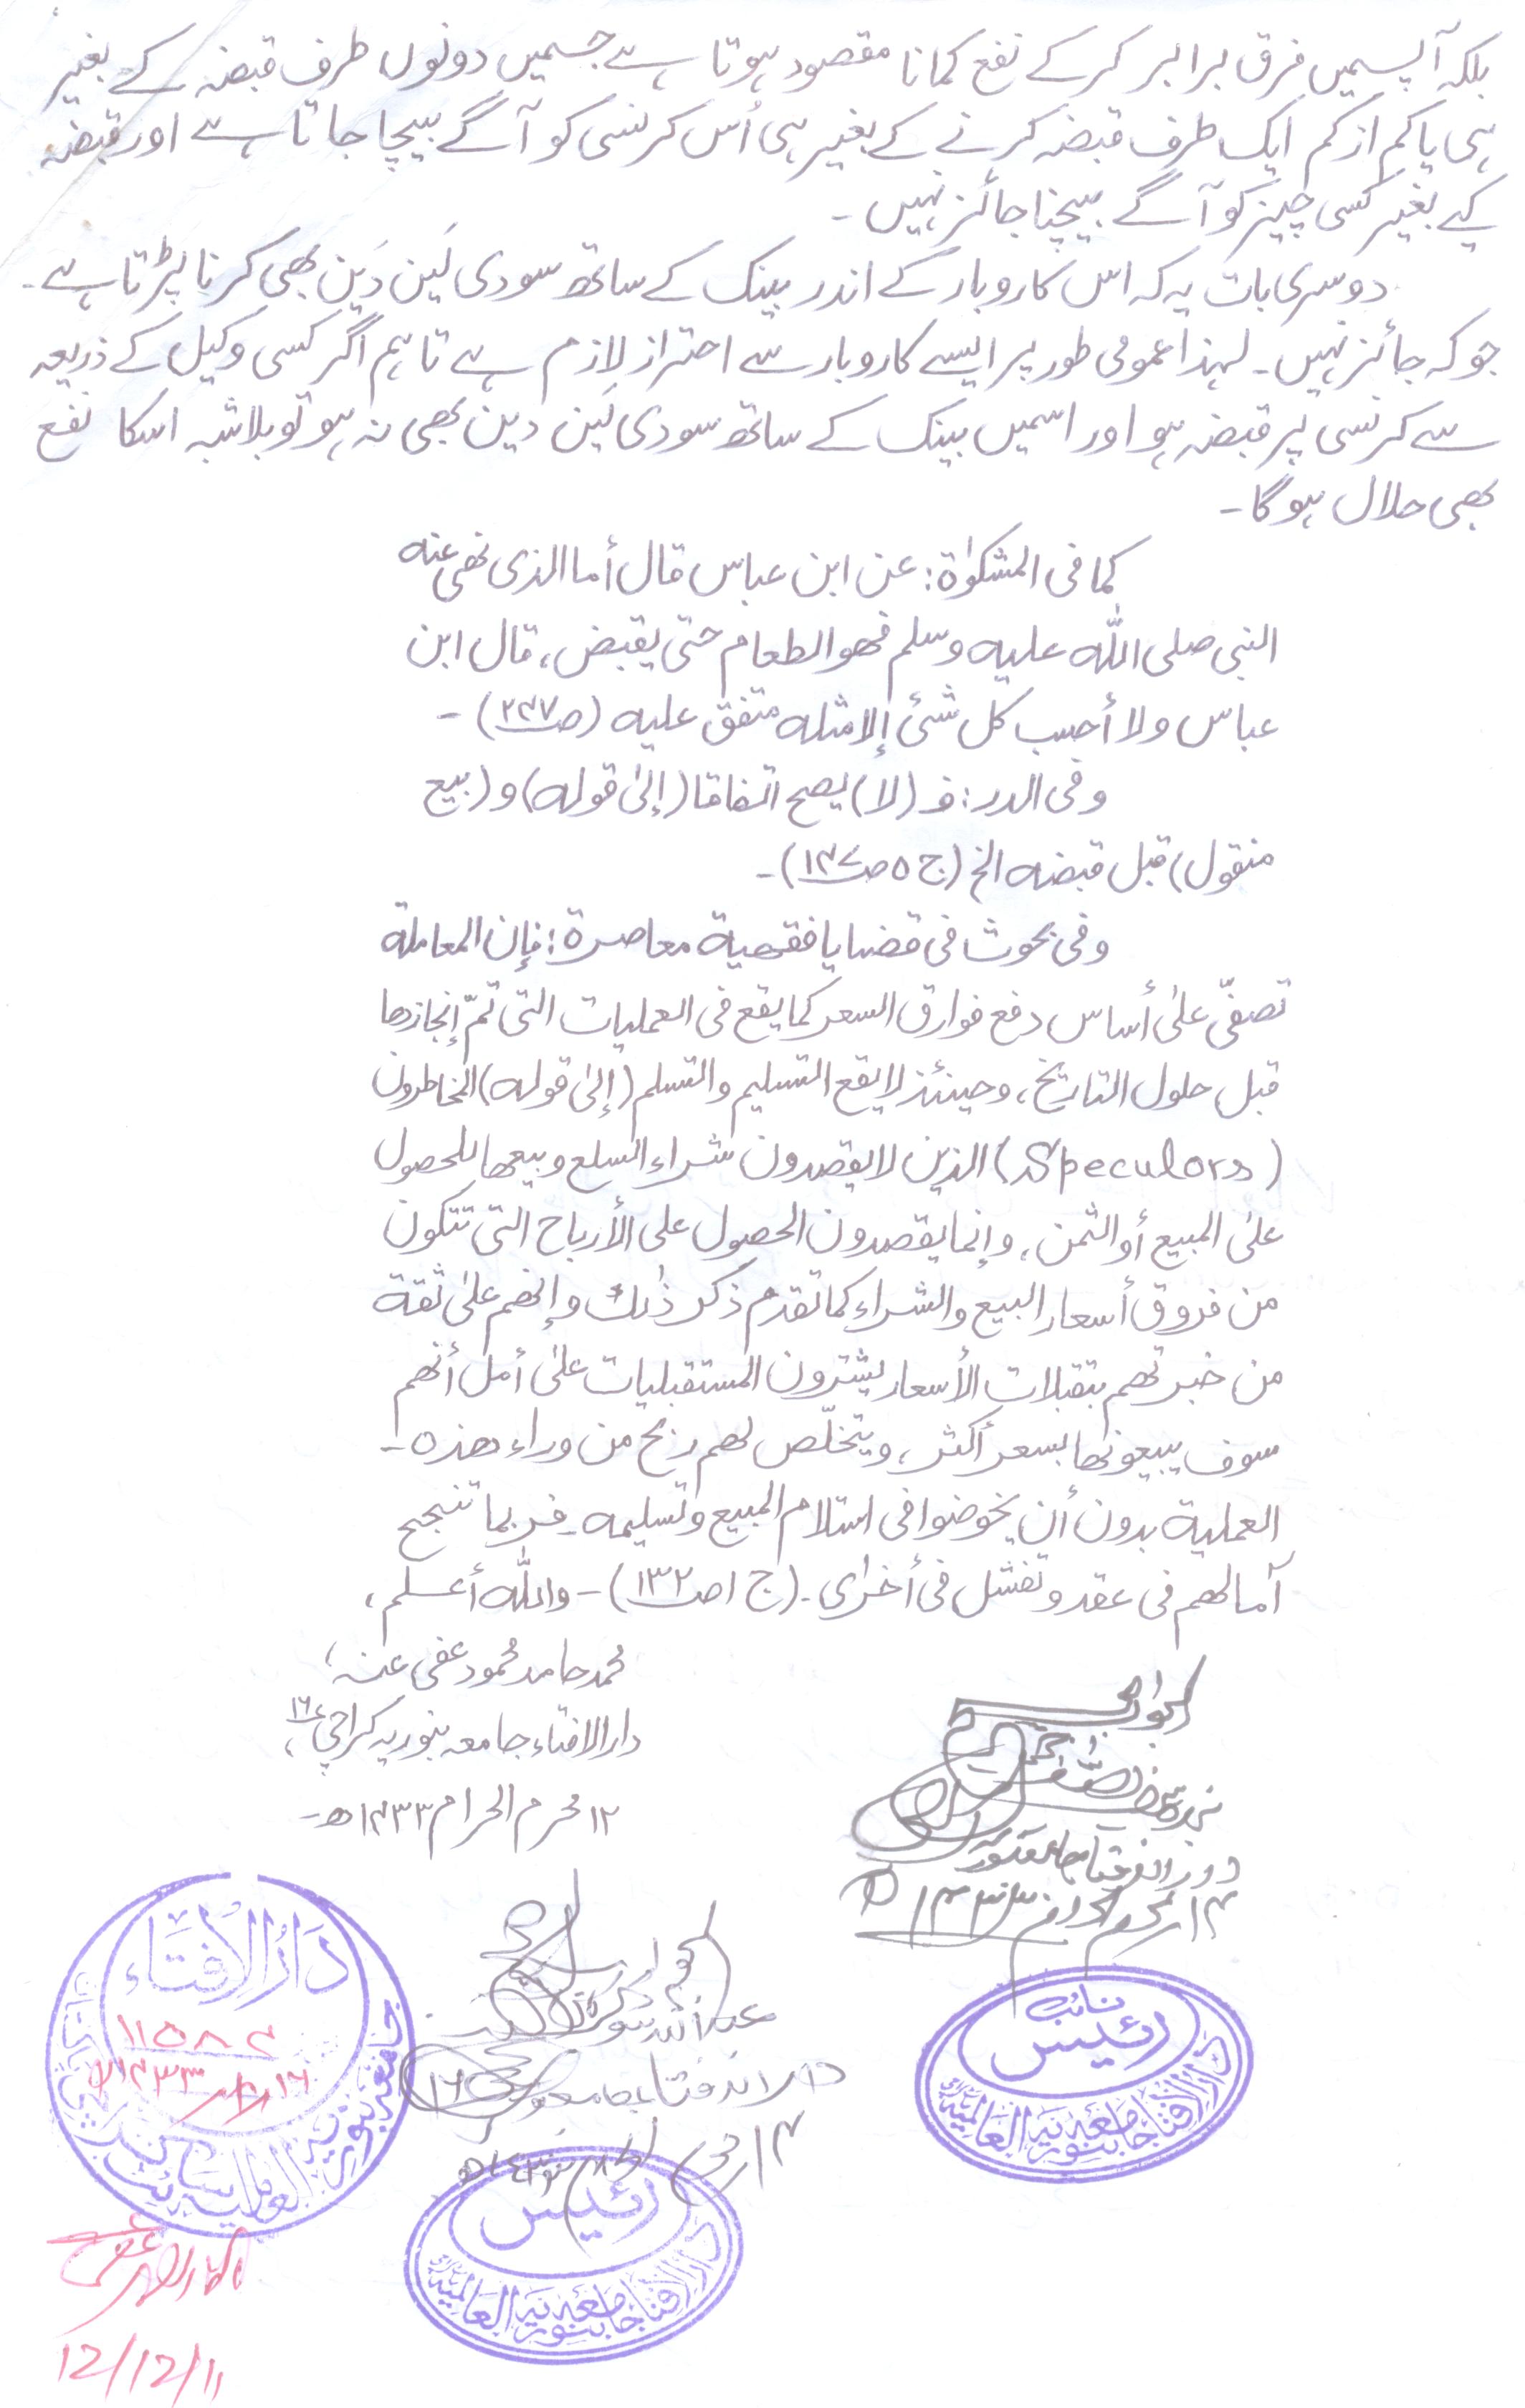 بلکہ آپسمیں فرق برابر کرکے نفع کمانا مقصود ہوتا ہے جسمیں دونوں طرف قبضہ کے بغیر
ہی یا کم از کم ایک طرف قبضہ کرنے کے بغیر ہی اُس کرنسی کو آگے بیچا جاتا ہے اور قبضہ
کیے بغیر کسی چیز کو آگے بیچنا جائز نہیں۔
دوسری بات یہ کہ اس کاروبار کے اندر بینک کے ساتھ سودی لَین دَین بھی کرنا پڑتا ہے۔
جو کہ جائز نہیں۔ لہذا عمومی طور پر ایسے کاروبار سے احتراز لازم ہے تاہم اگر کسی وکیل کے ذریعہ
سے کرنسی پر قبضہ ہو اور اسمیں بینک کے ساتھ سودی لین دین بھی نہ ہو تو بلاشبہ اسکا نفع
بھی حلال ہوگا۔
کما فی المشکوٰة: عن ابن عباس قال أما الذی نھی عنه
النبی صلی اللّٰه علیه وسلم فھو الطعام حتی یقبض، قال ابن
عباس ولا أحسب کل شئ إلا مثله متفق علیه (صـ۲۴۷)۔
وفی الدر: فـ (لا) یصح اتفاقا (إلیٰ قوله) و (بیع
منقول) قبل قبضه الخ (ج ۵ صـ۱۴۷)۔
وفی بحوث فی قضایا فقھیة معاصرة: فإن المعاملة
تصفّی علیٰ أساس دفع فوارق السعر کما یقع فی العملیات التی تمّ إنجازھا
قبل حلول التاریخ، وحینئذ لا یقع التسلیم والتسلم (إلیٰ قوله) المخاطرون
(Speculors) الذین لا یقصدون شراء السلع وبیعھا للحصول
علیٰ المبیع أو الثمن، وإنما یقصدون الحصول علی الأرباح التی تتکون
من فروق أسعار البیع والشراء کما تقدم ذکر ذٰلك وإنھم علیٰ ثقة
من خبرتھم بتقبلات الأسعار یشترون المستقبلیات علیٰ أمل أنھم
سوف یبیعونھا بسعر أکثر، ویتخلّص لھم ربح من وراء ھذه۔
العملیة بدون أن یخوضوا فی استلام المبیع وتسلیمه۔ فربما تنجح
آمالھم فی عقد وتفشل فی أخرٰی۔ (ج ۱ صـ۱۳۲)۔ واللّٰه أعلم،
محمد حامد محمود عفی عنہ،
دار الافتاء جامعہ بنوریہ کراچی ۱۶،
۱۲ محرم الحرام ۱۴۳۳ھ۔
الجواب
۱۴ محرم الحرام ۱۴۳۳ھ
نائب
رئیس
دار الافتاء جامعه بنوریه العالمیة
دار الافتاء جامعہ
رئیس
دار الافتاء جامعه بنوریه العالمیة
دَارُ الْاِفْتَاء
جامعہ بنوریہ العالمیہ سائٹ کراچی
۱۱۵۸۲
12/12/11